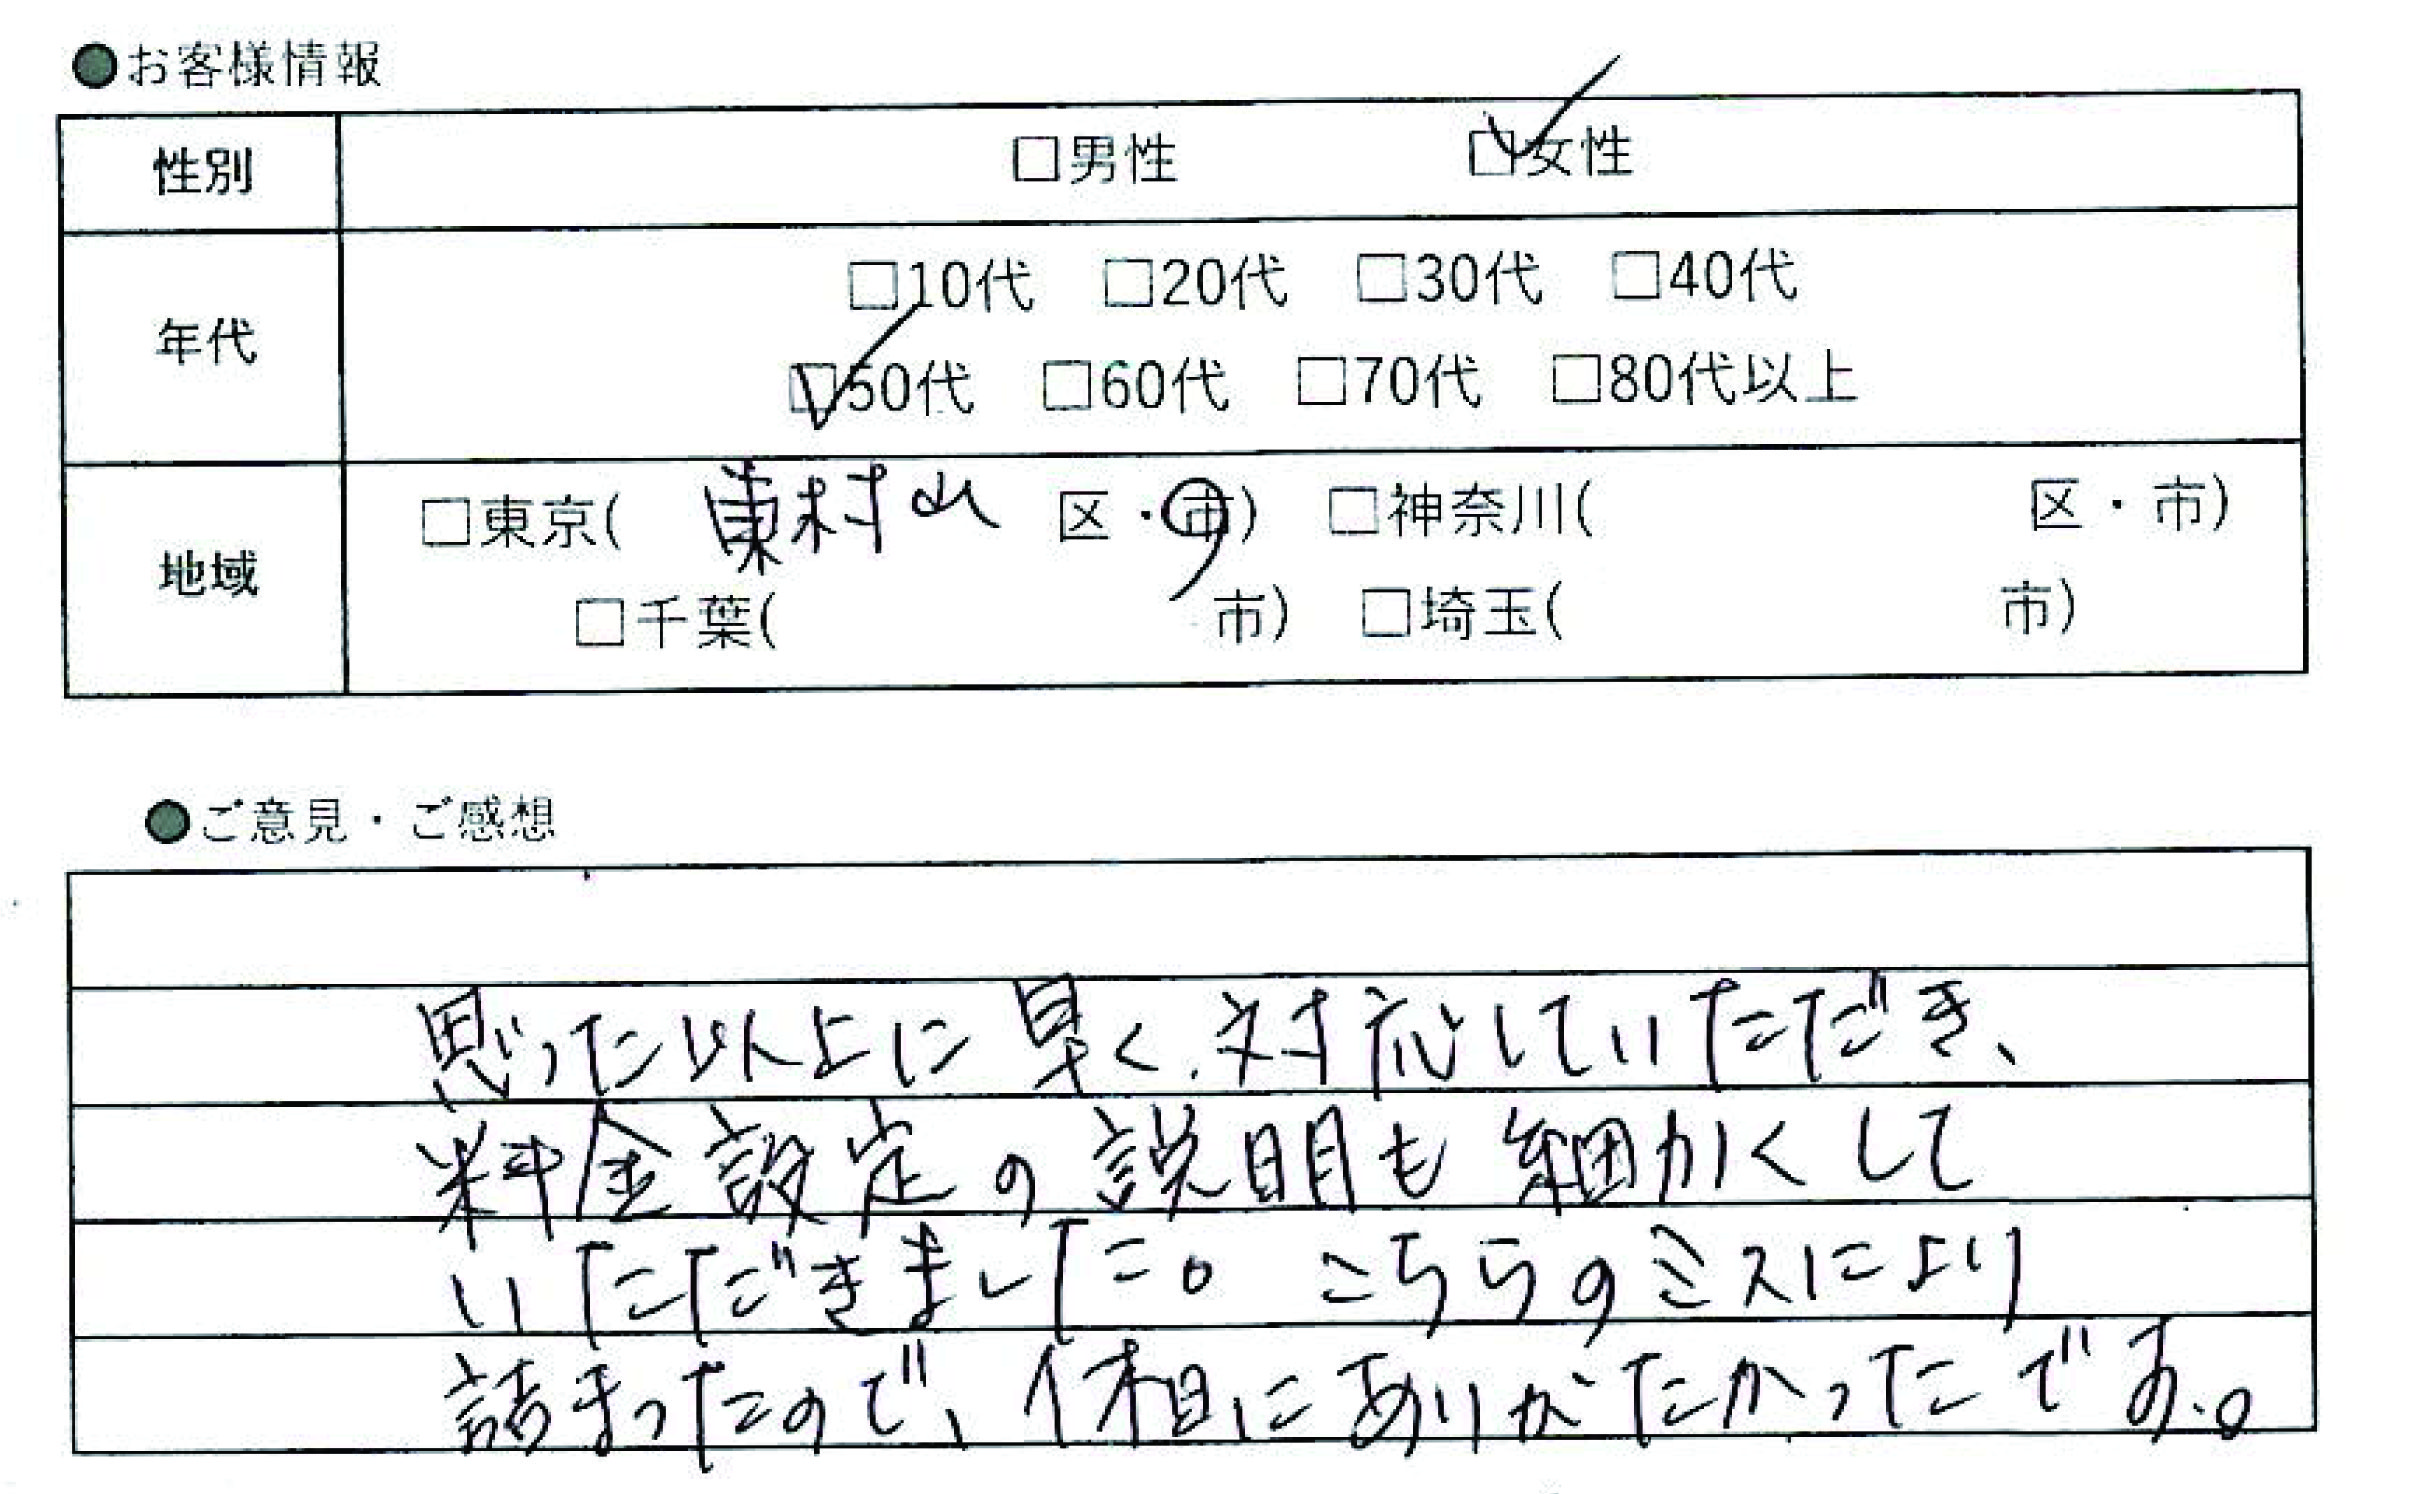 ●お客様情報
性別 □男性 ☑女性
年代 □10代 □20代 □30代 □40代
☑50代 □60代 □70代 □80代以上
地域 □東京( 東村山 区・市) □神奈川( 区・市)
□千葉( 市) □埼玉( 市)
●ご意見・ご感想
思った以上に早く、対応していただき、
料金設定の説明も細かくして
いただきました。こちらのミスにより
詰まったので、休日にありがたかったです。